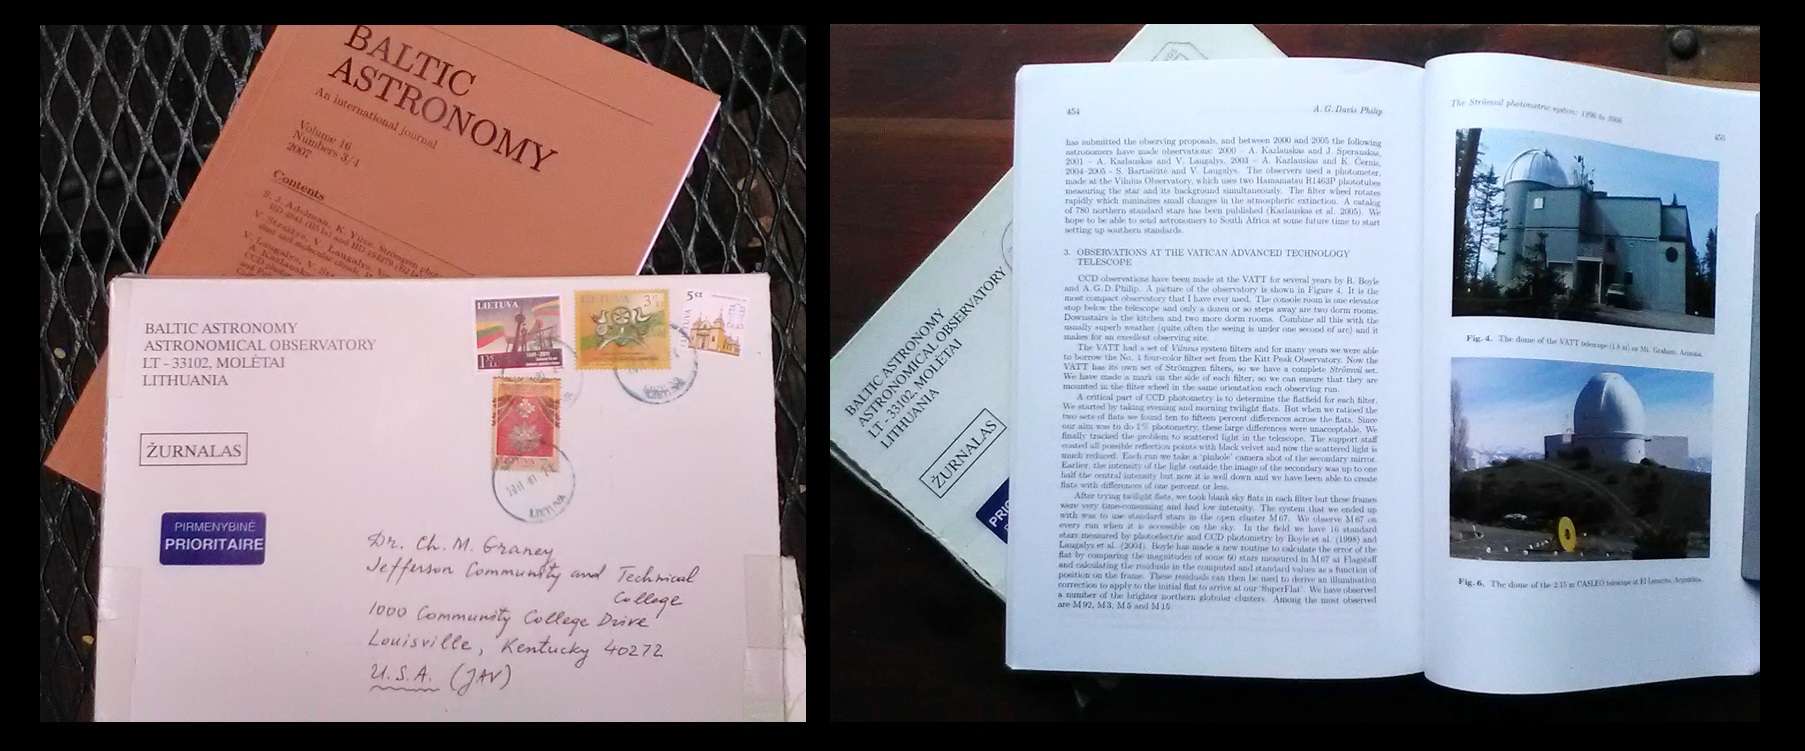 BALTIC
ASTRONOMY
An international journal
Volume 16
Numbers 3/4
2007
Contents
S. J. Adelman, K. Yüce. Strömgren
BALTIC ASTRONOMY
ASTRONOMICAL OBSERVATORY
LT - 33102, MOLĖTAI
LITHUANIA
ŽURNALAS
PIRMENYBINĖ
PRIORITAIRE
LIETUVA
LIETUVA
LIETUVA
Dr. Ch. M. Graney
Jefferson Community and Technical
College
1000 Community College Drive
Louisville, Kentucky 40272
U.S.A. (JAV)
BALTIC ASTRONOMY
ASTRONOMICAL OBSERVATORY
LT - 33102, MOLĖTAI
LITHUANIA
ŽURNALAS
454
A. G. Davis Philip
has submitted the observing proposals, and between 2000 and 2005 the following
astronomers have made observations: 2000 – A. Kazlauskas and J. Sperauskas,
2001 – A. Kazlauskas and V. Laugalys, 2003 – A. Kazlauskas and K. Černis,
2004–2005 - S. Bartašiūtė and V. Laugalys. The observers used a photometer,
made at the Vilnius Observatory, which uses two Hamamatsu R1463P phototubes
measuring the star and its background simultaneously. The filter wheel rotates
rapidly which minimizes small changes in the atmospheric extinction. A catalog
of 780 northern standard stars has been published (Kazlauskas et al. 2005). We
hope to be able to send astronomers to South Africa at some future time to start
setting up southern standards.
3. OBSERVATIONS AT THE VATICAN ADVANCED TECHNOLOGY
TELESCOPE
CCD observations have been made at the VATT for several years by R. Boyle
and A. G. D. Philip. A picture of the observatory is shown in Figure 4. It is the
most compact observatory that I have ever used. The console room is one elevator
stop below the telescope and only a dozen or so steps away are two dorm rooms.
Downstairs is the kitchen and two more dorm rooms. Combine all this with the
usually superb weather (quite often the seeing is under one second of arc) and it
makes for an excellent observing site.
The VATT had a set of Vilnius system filters and for many years we were able
to borrow the No. 1 four-color filter set from the Kitt Peak Observatory. Now the
VATT has its own set of Strömgren filters, so we have a complete Strömvil set.
We have made a mark on the side of each filter, so we can ensure that they are
mounted in the filter wheel in the same orientation each observing run.
A critical part of CCD photometry is to determine the flatfield for each filter.
We started by taking evening and morning twilight flats. But when we ratioed the
two sets of flats we found ten to fifteen percent differences across the flats. Since
our aim was to do 1% photometry, these large differences were unacceptable. We
finally tracked the problem to scattered light in the telescope. The support staff
coated all possible reflection points with black velvet and now the scattered light is
much reduced. Each run we take a 'pinhole' camera shot of the secondary mirror.
Earlier, the intensity of the light outside the image of the secondary was up to one
half the central intensity but now it is well down and we have been able to create
flats with differences of one percent or less.
After trying twilight flats, we took blank sky flats in each filter but these frames
were very time-consuming and had low intensity. The system that we ended up
with was to use standard stars in the open cluster M 67. We observe M 67 on
every run when it is accessible on the sky. In the field we have 16 standard
stars measured by photoelectric and CCD photometry by Boyle et al. (1998) and
Laugalys et al. (2004). Boyle has made a new routine to calculate the error of the
flat by comparing the magnitudes of some 60 stars measured in M 67 at Flagstaff
and calculating the residuals in the computed and standard values as a function of
position on the frame. These residuals can then be used to derive an illumination
correction to apply to the initial flat to arrive at our 'SuperFlat'. We have observed
a number of the brighter northern globular clusters. Among the most observed
are M 92, M 3, M 5 and M 15.
The Strömvil photometric system: 1996 to 2006
455
Fig. 4. The dome of the VATT telescope (1.8 m) on Mt. Graham, Arizona.
Fig. 6. The dome of the 2.15 m CASLEO telescope at El Leoncito, Argentina.